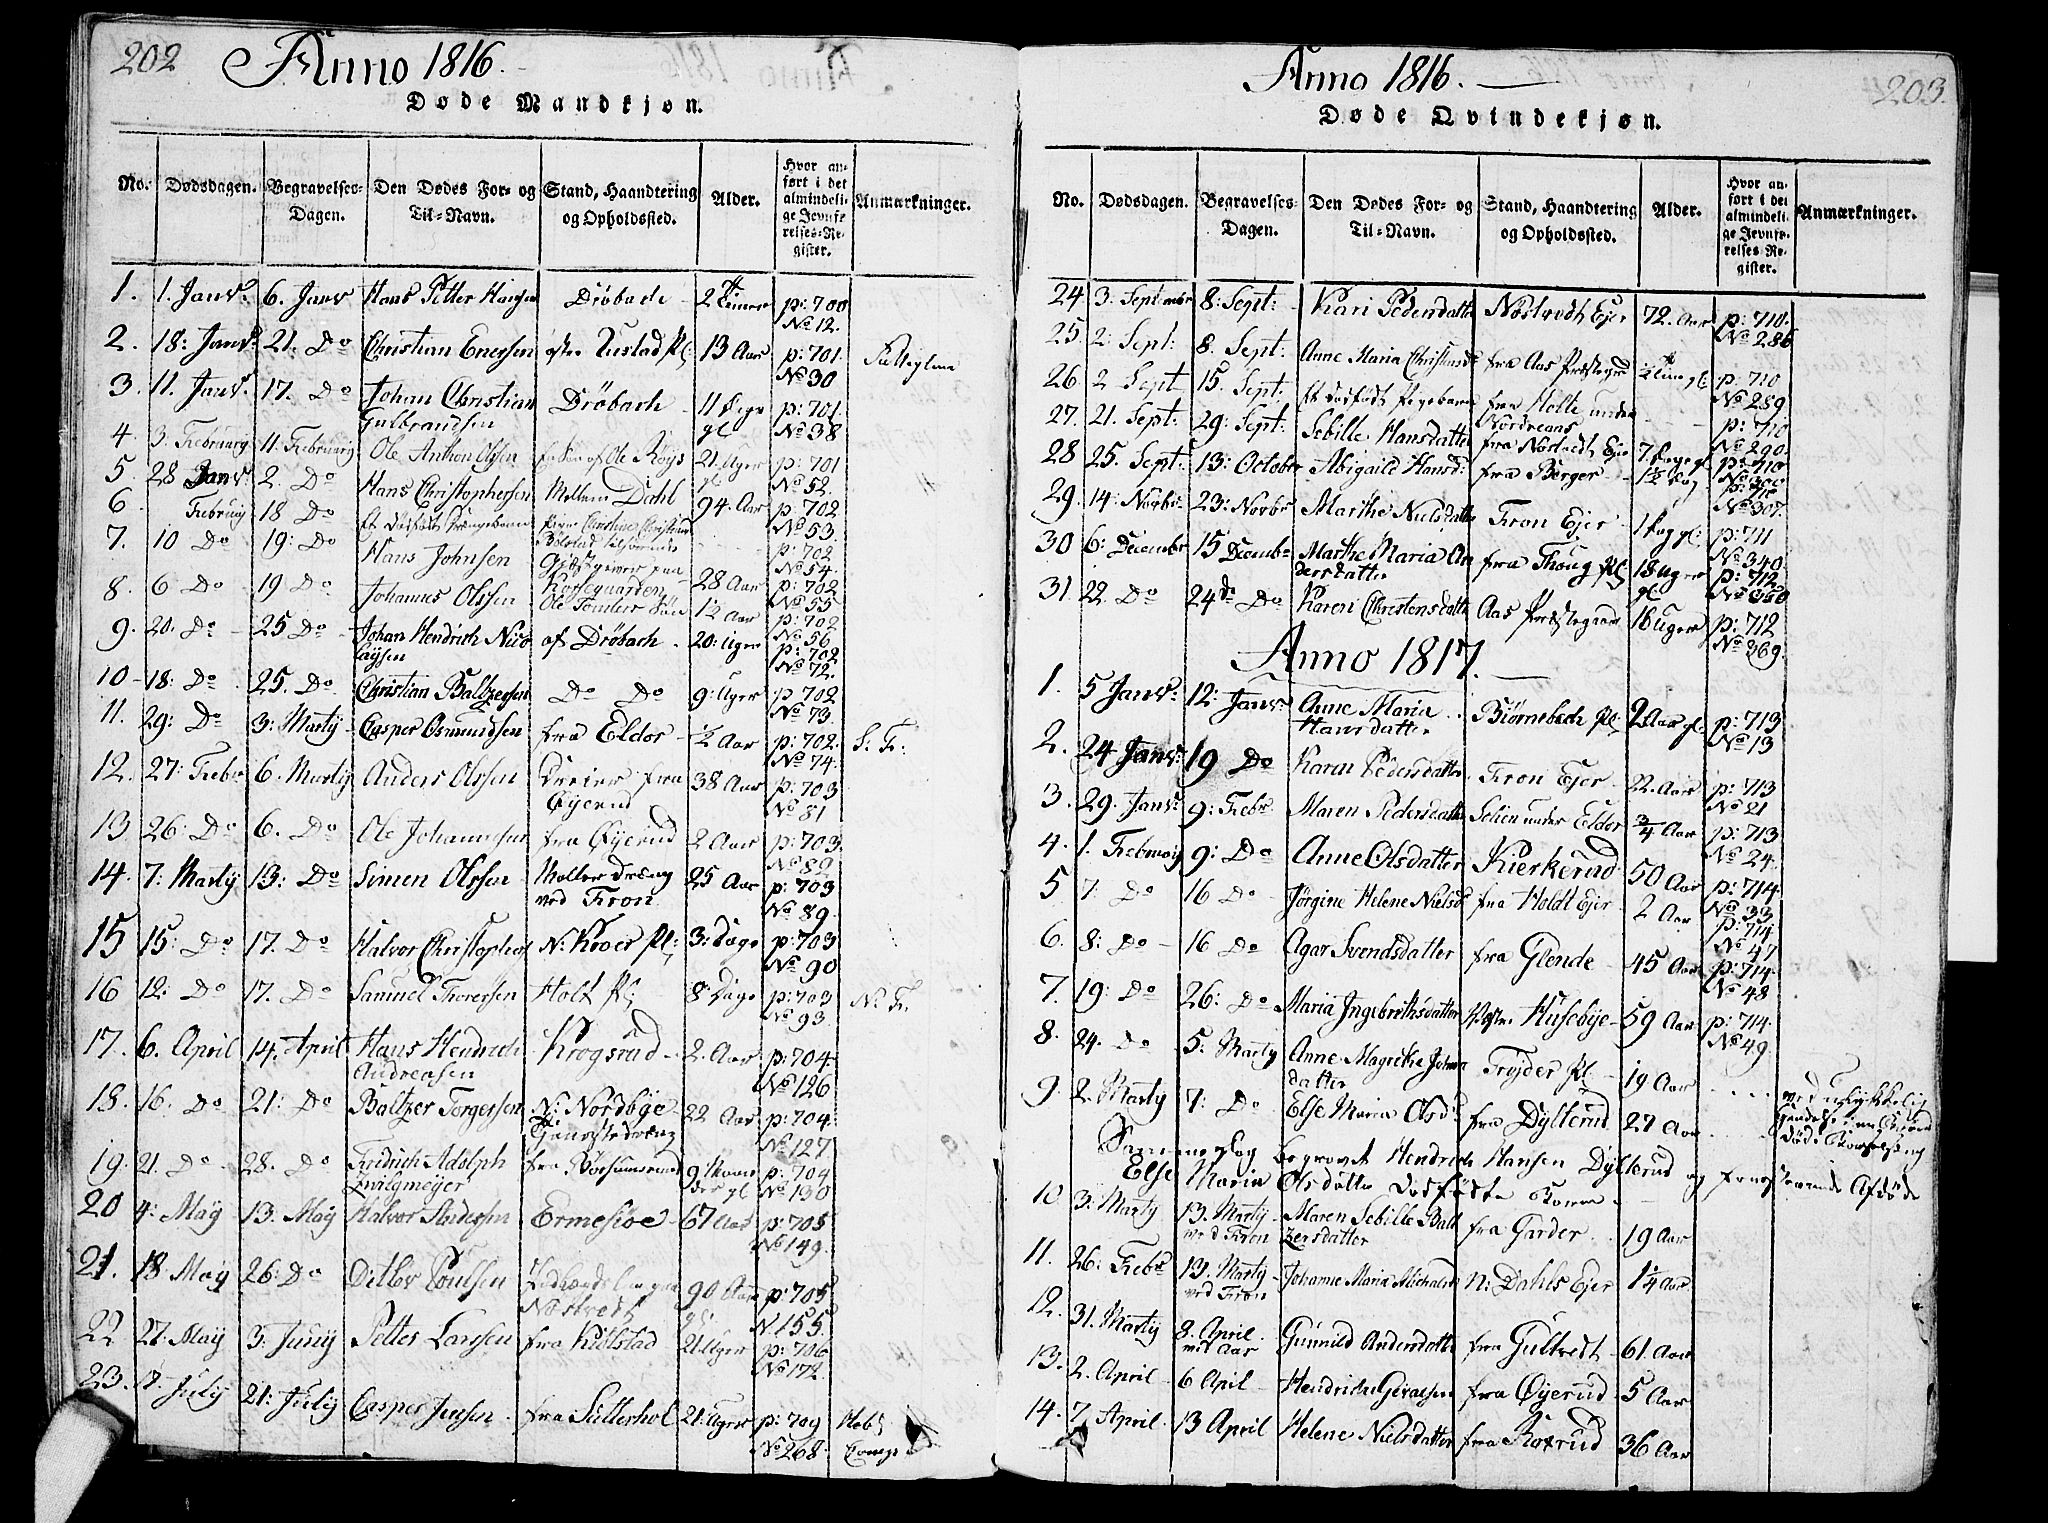 202 Anno 1816.
Døde Mandkjøn.
No. Dødsdagen. Begravelses-Dagen. Den Dødes For- og Til-Navn. Stand, Haandtering og Opholdssted. Alder. Hvor anført i det almindelige Jevnførelses-Register. Anmærkninger.
1. 1. Janv: 6. Janv Hans Petter Hansen Dröbach 2 Timer p: 700 No 12.
2. 18: Janv: 21. Do Christian Enersen Rustad Pl: 13 Aar p: 701. No 30
3. 11. Janv: 17. Do Johan Christian Gulbrandsen Dröbach 11 Dage gl p: 701. No 38
4. 3. Februarij 11. Februarij Ole Anthon Olsen 21. Uger gl p: 701 No 52.
5. 28 Janv: 2. Do Hans Christophersen Mellem Dahl 94. Aar p: 702 No 53.
6. Februarij 18 Do Et dødfødt Drengebarn p: 702 No 54.
7. 10 Do 19: Do Hans Johnsen Giæstgiver paa Korsegaarden 28 Aar p: 702 No 55
8. 6 Do 19 Do Johannes Olsen Ole Tomters Sön 1½ Aar p: 702 No 56
9. 20. Do 25 Do Johan Hendrich Nicolaysen af Dröbach 20: Uger p: 702 No 72.
10 18: Do 25. Do Christian Baltzersen Do Do 9: Uger p: 702 No 73.
11. 29: Do 3: Martij Casper Osmundsen fra Eldor ½ Aar p: 702. No 74. S. Fr:
12. 27: Febr 6. Martij Anders Olsen Dreier fra Öÿerud 38 Aar p: 703 No 81
13 26: Do 6. Do Ole Johannesen fra Öÿerud 2 Aar p: 703. No 82
14. 7: Martij 13: Do Simen Olsen Møller dreng ved Fron 25 Aar p: 703 No 89.
15 15: Do 17. Do Halvor Christopher N: Kroer Pl: 3: Dage p: 703 No 90
16 12: Do 17. Do Samuel Thoresen Holt Pl: 8: Dage p: 703 No 93 N. Fr.
17. 6. April 14. April Hans Hendrich Andreasen Krogsrud 2. Aar p: 704. No 126
18. 16. Do 21: Do Baltzer Torgersen N: Nordbye Tjenestedreng 22 Aar p: 704. No 127
19. 21. Do 28. Do Fredrich Adolph Zwilgmeyer fra 9 Maaneder gl p: 704 No 130
20 4: Maÿ 13. Maÿ Halvor Andersen Ermesiøe 67 Aar p: 705 No 149.
21. 18 Maÿ 26: Do Ditlev Poulsen Nøstvedt 90 Aar gl: p: 705 N. 155.
22 27: Maÿ 3: Junij Petter Larsen fra Kiölstad 21 Uger p: 706 No 172.
23. 17 Julij 21: Julij Casper Jensen fra Sætterhol 21: Uger p: 709 No 268.
Anno 1816. 203.
Døde Qvindekjøn.
No. Dødsdagen. Begravelses-Dagen. Den Dødes For- og Til-Navn. Stand, Haandtering og Opholdssted. Alder. Hvor anført i det almindelige Jevnførelses-Register. Anmærkninger.
24 3. September 8: Sept: Kari Pedersdatter Nøstvedt Ejer 72. Aar p: 710. No 286
25. 2: Sept: 8. Sept: Anne Maria Christensd: fra Aas Præstegrd ½ Time gl p: 710 No 289
26. 2 Sept 15. Sept: Et dødfødt Pigebarn fra Holte under Nordreaas p: 710 No 290
27. 21. Sept: 29: Sept: Sebille Hansdatter fra Nøstvedt Ejer 7 Dage gl p: 710 No 300
28 25. Sept: 13: October Abigaild Hansd: fra Berger 1½ Dag p: 710 No 307.
29. 14: Novbr 23: Novbr Marthe Nielsdatter Fron Ejer 1 Dag gl: p: 711 No 340
30 6: December 15 Decembr Marthe Maria Andersdatter fra Thoug Pl: 18 Uger gl p: 712 No 350
31. 22 Do 24de Do Karen Christensdatter Aas Præstegaard 16 Uger p: 712 No 369.
Anno 1817.
1. 5 Janv: 12: Janv: Anne Maria Hansdatter Biørnebech Pl: 2 Aar gl. p: 713 No 13
2. 24 Janv: 19 Do Karen Pedersdatter Fron Ejer 22. Aar p: 713 No 21
3. 29. Janv: 9: Febr. Maren Pedersdatter Solien under Eldor ¾ Aar p: 713 No 24.
4. 1. Februarij 9: Do Anne Olsdatter Kierkerud 50 Aar p: 714 No 33
5 7: Do 16 Do Jørgine Helene Nielsd: fra Holdt Ejer 2 Aar p: 714 No 47
6. 8: Do 16 Do Agar Svendsdatter fra Glende 45 Aar p: 714 No 48
7. 19: Do 26: Do Maria Ingebrethsdatter Huseböje 59 Aar p: 714 No 49.
8. 24. Do 5. Martij Anne Magrethe Johnsdatter Frøjder Pl 19 Aar
9. 2. Martij 7: Do Else Maria Olsd: fra Dÿlterud 27 Aar ved ulykkelig Hendelse i sin Barne død i Barselseng
Samme Dag begravet Hendrich Hansen Dÿlterud og forestaaende Afdøde
Else Maria Olsdatters dødfødte Barn
10. 3: Martij 13. Martij ved Fron Maren Sebille Baltzersdatter fra Garder 19 Aar
11. 26: Febr. 13. Martij ved Fron Johanne Maria Michalsd N: Dahls Ejer 1¼ Aar
12. 31. Martij 8. April ved Aas Gunnild Andersdatter fra Gultvedt 61. Aar
13. 2. April 6 Apil fra Öÿerud 5 Aar
14. 7. April 13 April Helene Nielsdatter fra Roxrud 36 Aar